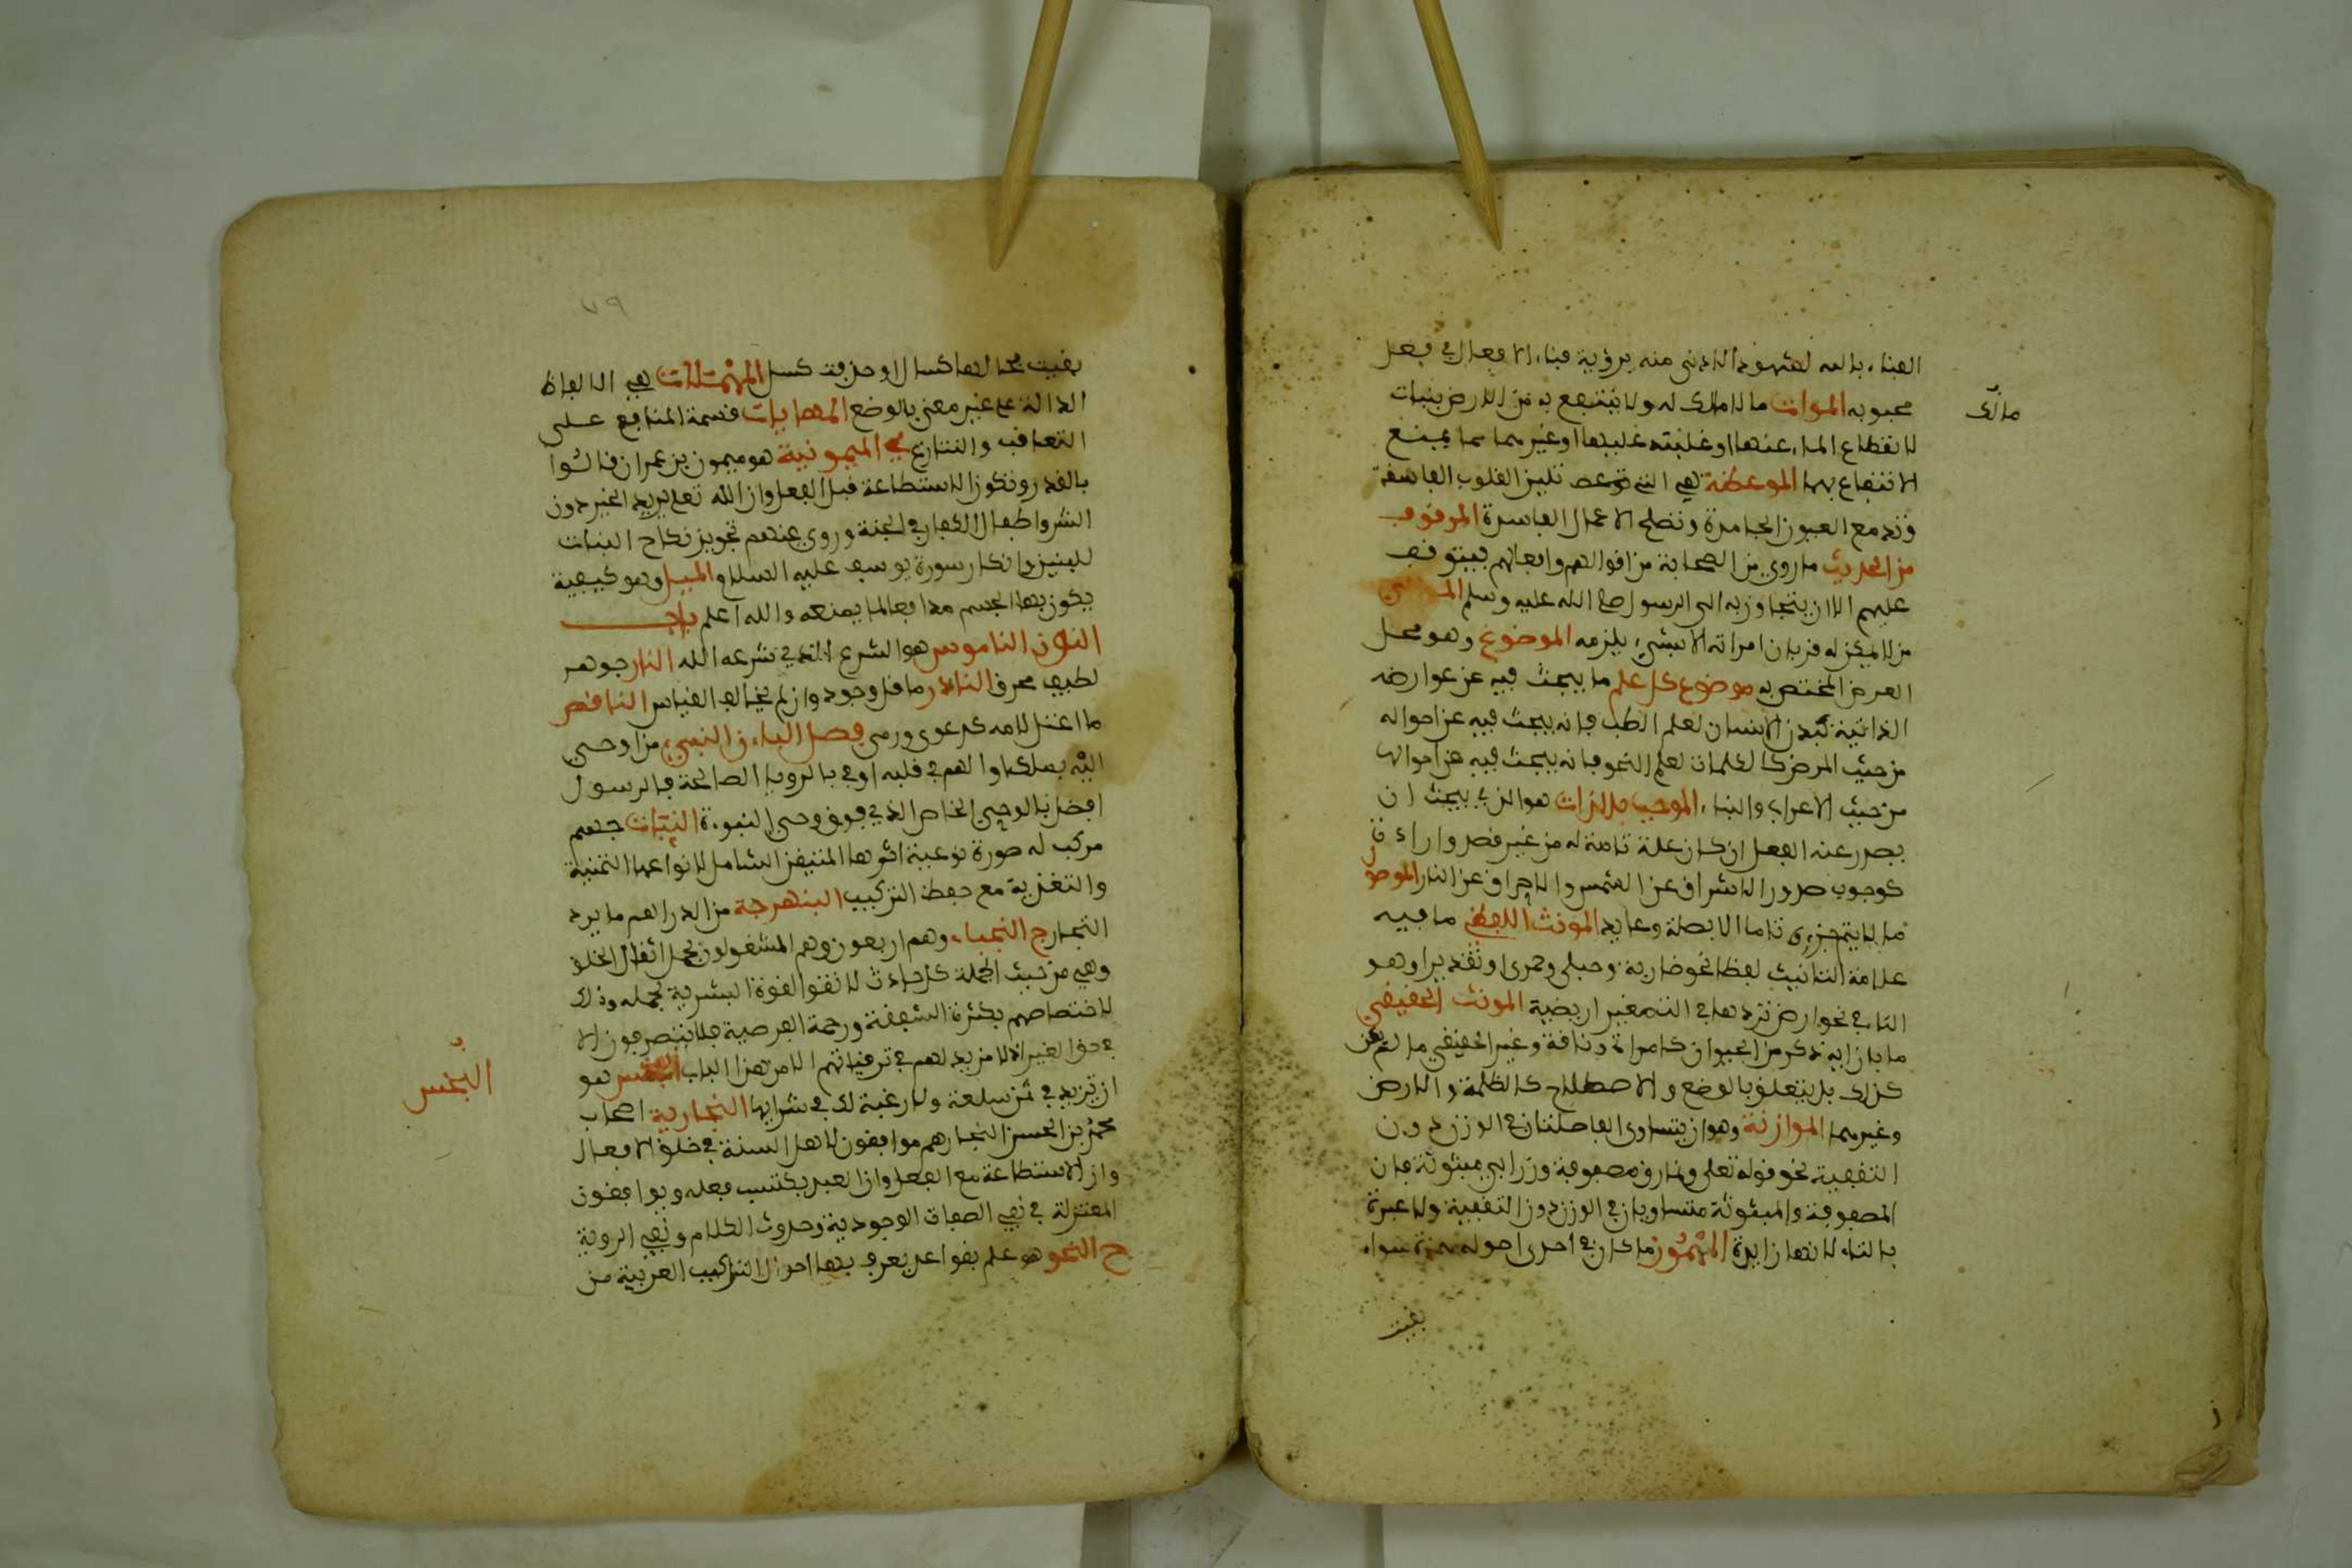 الفناء بالله لشهود الادنى منه برؤية فناء الافعال في فعل
محبوبه الموات ما لا مالك له ولا ينتفع به من الارض بنبات
مالك
لانقطاع الماء عنها او غلبته عليها او غيرهما مما يمنع
الانتفاع بها الموعظة هي التي تلين القلوب القاسية
وتدمع العيون الجامدة وتصلح الاعمال الفاسدة الموقوف
من الحديث ما روي من الصحابة من اقوالهم وافعالهم فيتوقف
عليهم ولا يتجاوز به الى الرسول صلى الله عليه وسلم المولى
من لا يمكن له قربان امراته الا بشيء يلزمه الموضوع وهو محل
العرض المختص به موضوع كل علم ما يبحث فيه عن عوارضه
الذاتية كبدن الانسان لعلم الطب فانه يبحث فيه عن احواله
من حيث المرض كالكلمات لعلم النحو فانه يبحث فيه عن احوالها
من حيث الاعراب والبناء الموجب بالذات هو الذي يجب ان
يصدر عنه الفعل ان كان علة تامة له من غير قصد وارادة
كوجوب صدور الاشراق عن الشمس والاحراق عن النار الموصول
ما لا يتم جزء تاما الا بصلة وعايد المونث اللفظي ما فيه
علامة التانيث لفظا نحو ضاربة وحبلى وحمرى او تقديرا وهو
التا في نحو ارض تردها في التصغير اريضة المونث الحقيقي
ما بازايه ذكر من الحيوان كامراة وناقة وغير الحقيقي ما لم يكن
كذلك بل يتعلق بالوضع والاصطلاح كالظلمة والارض
وغيرهما الموازنة وهو ان يتساوى الفاصلتان في الوزن دون
التقفية نحو قوله تعلى ونمارق مصفوفة وزرابي مبثوثة فان
المصفوفة والمبثوثة متساويان في الوزن دون التقفية ولا عبرة
بالتاء لانها زايدة المهموز ما كان في احدى اصوله همزة سواء
بقيت
٧٩
بقيت بحالها كسال او حذفت كسل المهملات هي الالفاظ
الدالة على غير معنى بالوضع المهايات قسمة المنافع على
التعاقب والتنازع ي الميمونية هو ميمون بن عمران قالوا
بالقدر وتكون الاستطاعة قبل الفعل وان الله تعلى يريد الخير دون
الشر واطفال الكفار في الجنة وروي عنهم تجويز نكاح البنات
للبنين وانكار سورة يوسف عليه السلام الميل وهو كيفية
يكون بها الجسم مدافعا لما يمنعه والله اعلم باب
النون الناموس هو الشرع الذي شرعه الله النار جوهر
لطيف محرق النادر ما قل وجوده وان لم يخالف القياس الناقص
ما اعتل لامه كدعى ورمى فصل الباء ف النبي من اوحي
اليه بملك او الهم في قلبه او في بالرويا الصالحة فالرسول
افضل بالوحي الخاص الذي فوق وحي النبوءة النبات جسم
مركب له صورة نوعية اثرها المتيقن الشامل لانواعها التنمية
والتغذية مع حفظ التركيب النبهرجة من الدراهم ما يرد
التجار ج النجباء وهم اربعون وهم المشغولون بحمل اثقال الخلق
وهي من حيث الجملة كل حادث لا تفو القوة البشرية بحمله وذلك
لاختصاصهم بكثرة الشفقة ورحمة الفرصية فلا يتصرفون الا
في حق الغير اذ لا مزيد لهم في ترقياتهم الا من هذا الباب النجش هو
النجش
ان تزيد في ثمن سلعة ولا رغبة لك في شرايها النجارية اصحاب
محمد بن الحسن النجار هم موافقون لاهل السنة في خلق الافعال
وان الاستطاعة مع الفعل وان العبد يكتسب فعله ويوافقون
المعتزلة في نفي الصفات الوجودية وحدوث الكلام ونفي الروية
ح النحو هو علم بقواعد يعرف بها احوال التراكيب العربية من